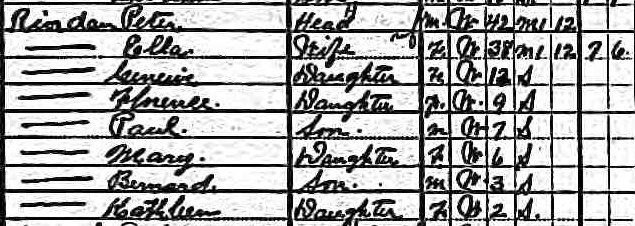 Riordan Peter. Head m. W 42 M1 12
—— Ella. Wife F. W 38 M1 12 7 6
—— Daughter F. W. 12 S
—— Florence. Daughter F. W. 9 S
—— Paul. Son. m W 7 S
—— Mary. Daughter F. W 6 S
—— Bernard. Son. m W. 3 S
—— Kathleen Daughter F. W 2 S.